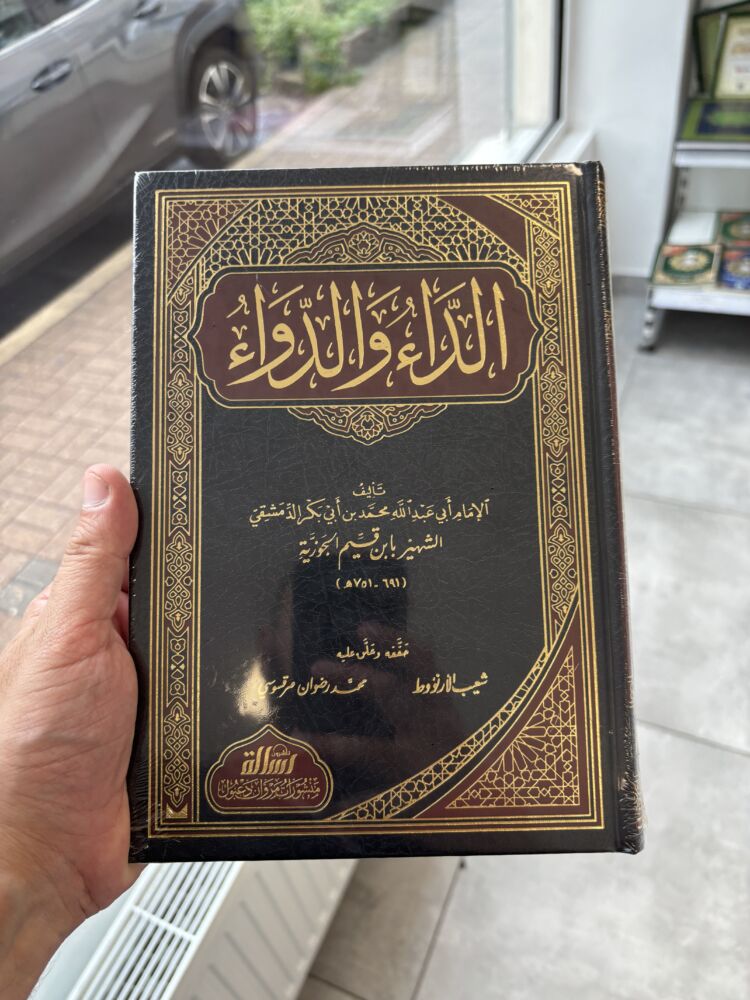 الدَّاءُ وَالدَّوَاءُ
تَأليفُ
الإمَامِ أَبي عَبْدِ اللَّهِ مُحَمَّد بن أَبي بَكْر الدِّمَشْقِيّ
الشَّهِيْر بِابن قَيِّم الجَوْزِيَّةِ
(٦٩١ - ٧٥١ هـ)
حَقَّقَه وَعَلَّقَ عَلَيه
شعَيب الأرنؤوط محمّد رضوان عرقسوسي
ناشرون
رسالة
مَنْشُورَات مَرْوَان دَعْبُول